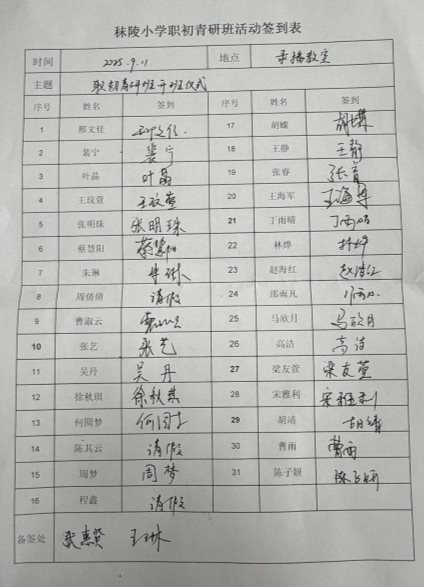 秣陵小学职初青研班活动签到表
时间 2025.9.11 地点 录播教室
主题 职初青研班开班仪式
序号 姓名 签到 序号 姓名 签到
1 邢文佳 邢文佳 17 胡蝶 胡蝶
2 裴宁 裴宁 18 王静 王静
3 叶晶 叶晶 19 张睿 张睿
4 王玟萱 王玟萱 20 王海军 王海军
5 张明珠 张明珠 21 丁雨晴 丁雨晴
6 蔡慧阳 蔡慧阳 22 林烨 林烨
7 朱琳 朱琳 23 赵海红 赵海红
8 周倩倩 请假 24 邵雨凡
9 曹淑云 25 马欣月 马欣月
10 张艺 张艺 26 高洁 高洁
11 吴丹 吴丹 27 梁友萱 梁友萱
12 徐秋琪 徐秋琪 28 宋雅利 宋雅利
13 何圆梦 29 胡靖 胡靖
14 陈其云 请假 30 曹雨 曹雨
15 周梦 周梦 31 陈子妍 陈子妍
16 程鑫 请假
备签处 张惠贤 王琳